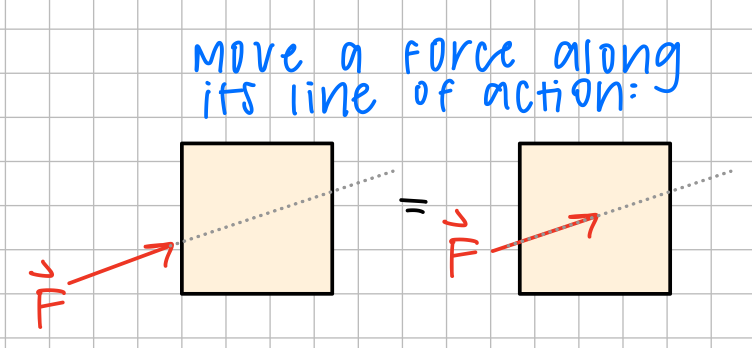 Move a force along
its line of action:
F⃗
=
F⃗